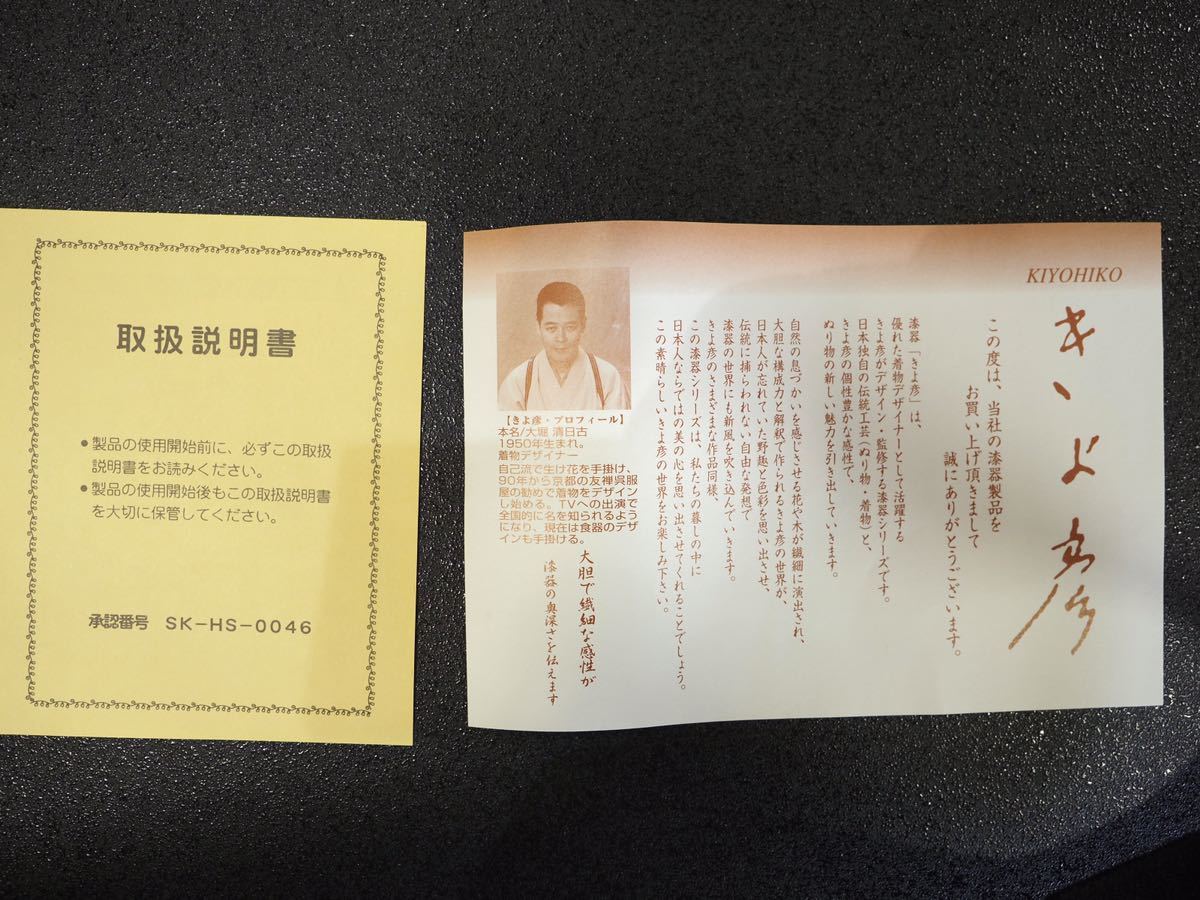 取扱説明書
●製品の使用開始前に、必ずこの取扱
説明書をお読みください。
●製品の使用開始後もこの取扱説明書
を大切に保管してください。
承認番号 SK-HS-0046
KIYOHIKO
きよ彦
この度は、当社の漆器製品を
お買い上げ頂きまして
誠にありがとうございます。
漆器「きよ彦」は、
優れた着物デザイナーとして活躍する
きよ彦がデザイン・監修する漆器シリーズです。
日本独自の伝統工芸(ぬり物・着物)と、
きよ彦の個性豊かな感性で、
ぬり物の新しい魅力を引き出していきます。
自然の息づかいを感じさせる花や木が繊細に演出され、
大胆な構成力と解釈で作られるきよ彦の世界が、
日本人が忘れていた野趣と色彩を思い出させ、
伝統に捕らわれない自由な発想で
漆器の世界にも新風を吹き込んでいきます。
きよ彦のさまざまな作品同様、
この漆器シリーズは、私たちの暮しの中に
日本人ならではの美の心を思い出させてくれることでしょう。
この素晴らしいきよ彦の世界をお楽しみ下さい。
【きよ彦・プロフィール】
本名/大堀 清日古
1950年生まれ。
着物デザイナー
自己流で生け花を手掛け、
90年から京都の友禅呉服
屋の勧めで着物をデザイン
し始める。TVへの出演で
全国的に名を知られるよう
になり、現在は食器のデザ
インも手掛ける。
大胆で繊細な感性が
漆器の奥深さを伝えます